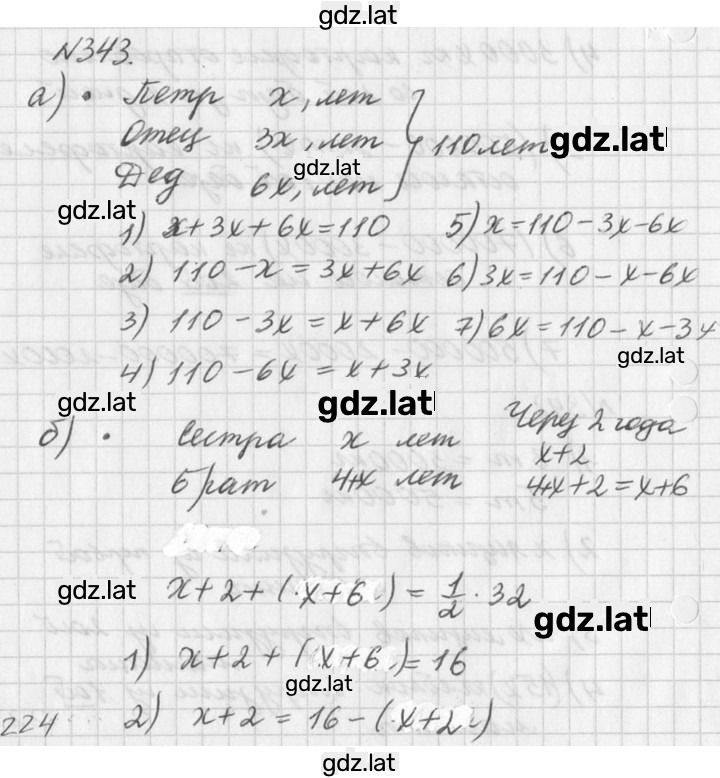 gdz.lat
N343.
а) • Петр x, лет
Отец 3x, лет } 110 лет gdz.lat
gdz.lat
Дед 6x, лет
gdz.lat
1) x+3x+6x=110 5) x=110-3x-6x
2) 110-x=3x+6x 6) 3x=110-x-6x
3) 110-3x=x+6x 7) 6x=110-x-3x
gdz.lat
4) 110-6x=x+3x
gdz.lat gdz.lat
б) • Сестра x лет Через 2 года
x+2
брат 4+x лет 4+x+2=x+6
gdz.lat
x+2+(x+6)=1/2·32
gdz.lat
1) x+2+(x+6)=16
gdz.lat
224 2) x+2=16-(x+2)
gdz.lat